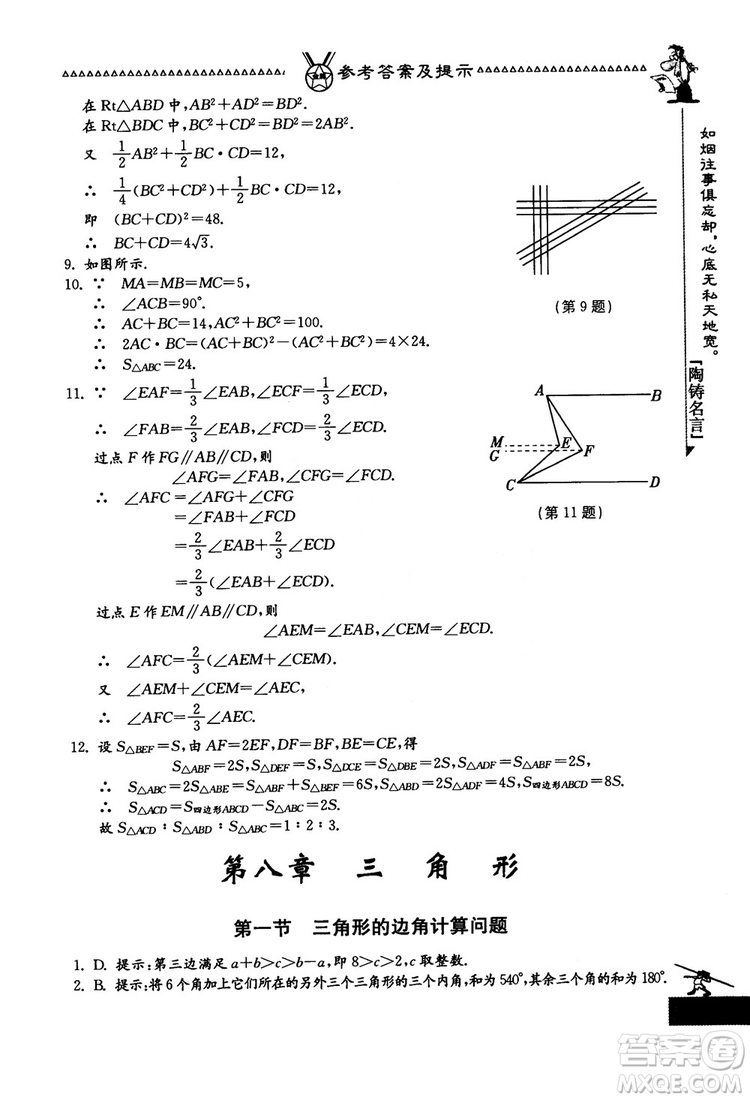 参考答案及提示
在 Rt△ABD 中,AB²+AD²=BD².
在 Rt△BDC 中,BC²+CD²=BD²=2AB².
又 1/2AB²+1/2BC·CD=12,
∴ 1/4(BC²+CD²)+1/2BC·CD=12,
即 (BC+CD)²=48.
∴ BC+CD=4√3.
9. 如图所示.
10. ∵ MA=MB=MC=5,
∴ ∠ACB=90°.
∴ AC+BC=14,AC²+BC²=100.
∴ 2AC·BC=(AC+BC)²-(AC²+BC²)=4×24.
∴ S△ABC=24.
(第 9 题)
11. ∵ ∠EAF=1/3∠EAB,∠ECF=1/3∠ECD,
∴ ∠FAB=2/3∠EAB,∠FCD=2/3∠ECD.
过点 F 作 FG∥AB∥CD,则
∠AFG=∠FAB,∠CFG=∠FCD.
∴ ∠AFC=∠AFG+∠CFG
=∠FAB+∠FCD
=2/3∠EAB+2/3∠ECD
=2/3(∠EAB+∠ECD).
过点 E 作 EM∥AB∥CD,则
∠AEM=∠EAB,∠CEM=∠ECD.
∴ ∠AFC=2/3(∠AEM+∠CEM).
又 ∠AEM+∠CEM=∠AEC,
∴ ∠AFC=2/3∠AEC.
A
B
M
G
E
F
C
D
(第 11 题)
12. 设 S△BEF=S,由 AF=2EF,DF=BF,BE=CE,得
S△ABF=2S,S△DEF=S,S△DCE=S△DBE=2S,S△ADF=S△ABF=2S,
∴ S△ABC=2S△ABE=S△ABF+S△BEF=6S,S△ABD=2S△ADF=4S,S四边形ABCD=8S.
∴ S△ACD=S四边形ABCD-S△ABC=2S.
故 S△ACD∶S△ABD∶S△ABC=1∶2∶3.
第八章 三角形
第一节 三角形的边角计算问题
1. D. 提示:第三边满足 a+b>c>b-a,即 8>c>2,c 取整数.
2. B. 提示:将 6 个角加上它们所在的另外三个三角形的三个内角,和为 540°,其余三个角的和为 180°.
如烟往事俱忘却,心底无私天地宽。
「陶铸名言」
答案圈
MXQE.COM